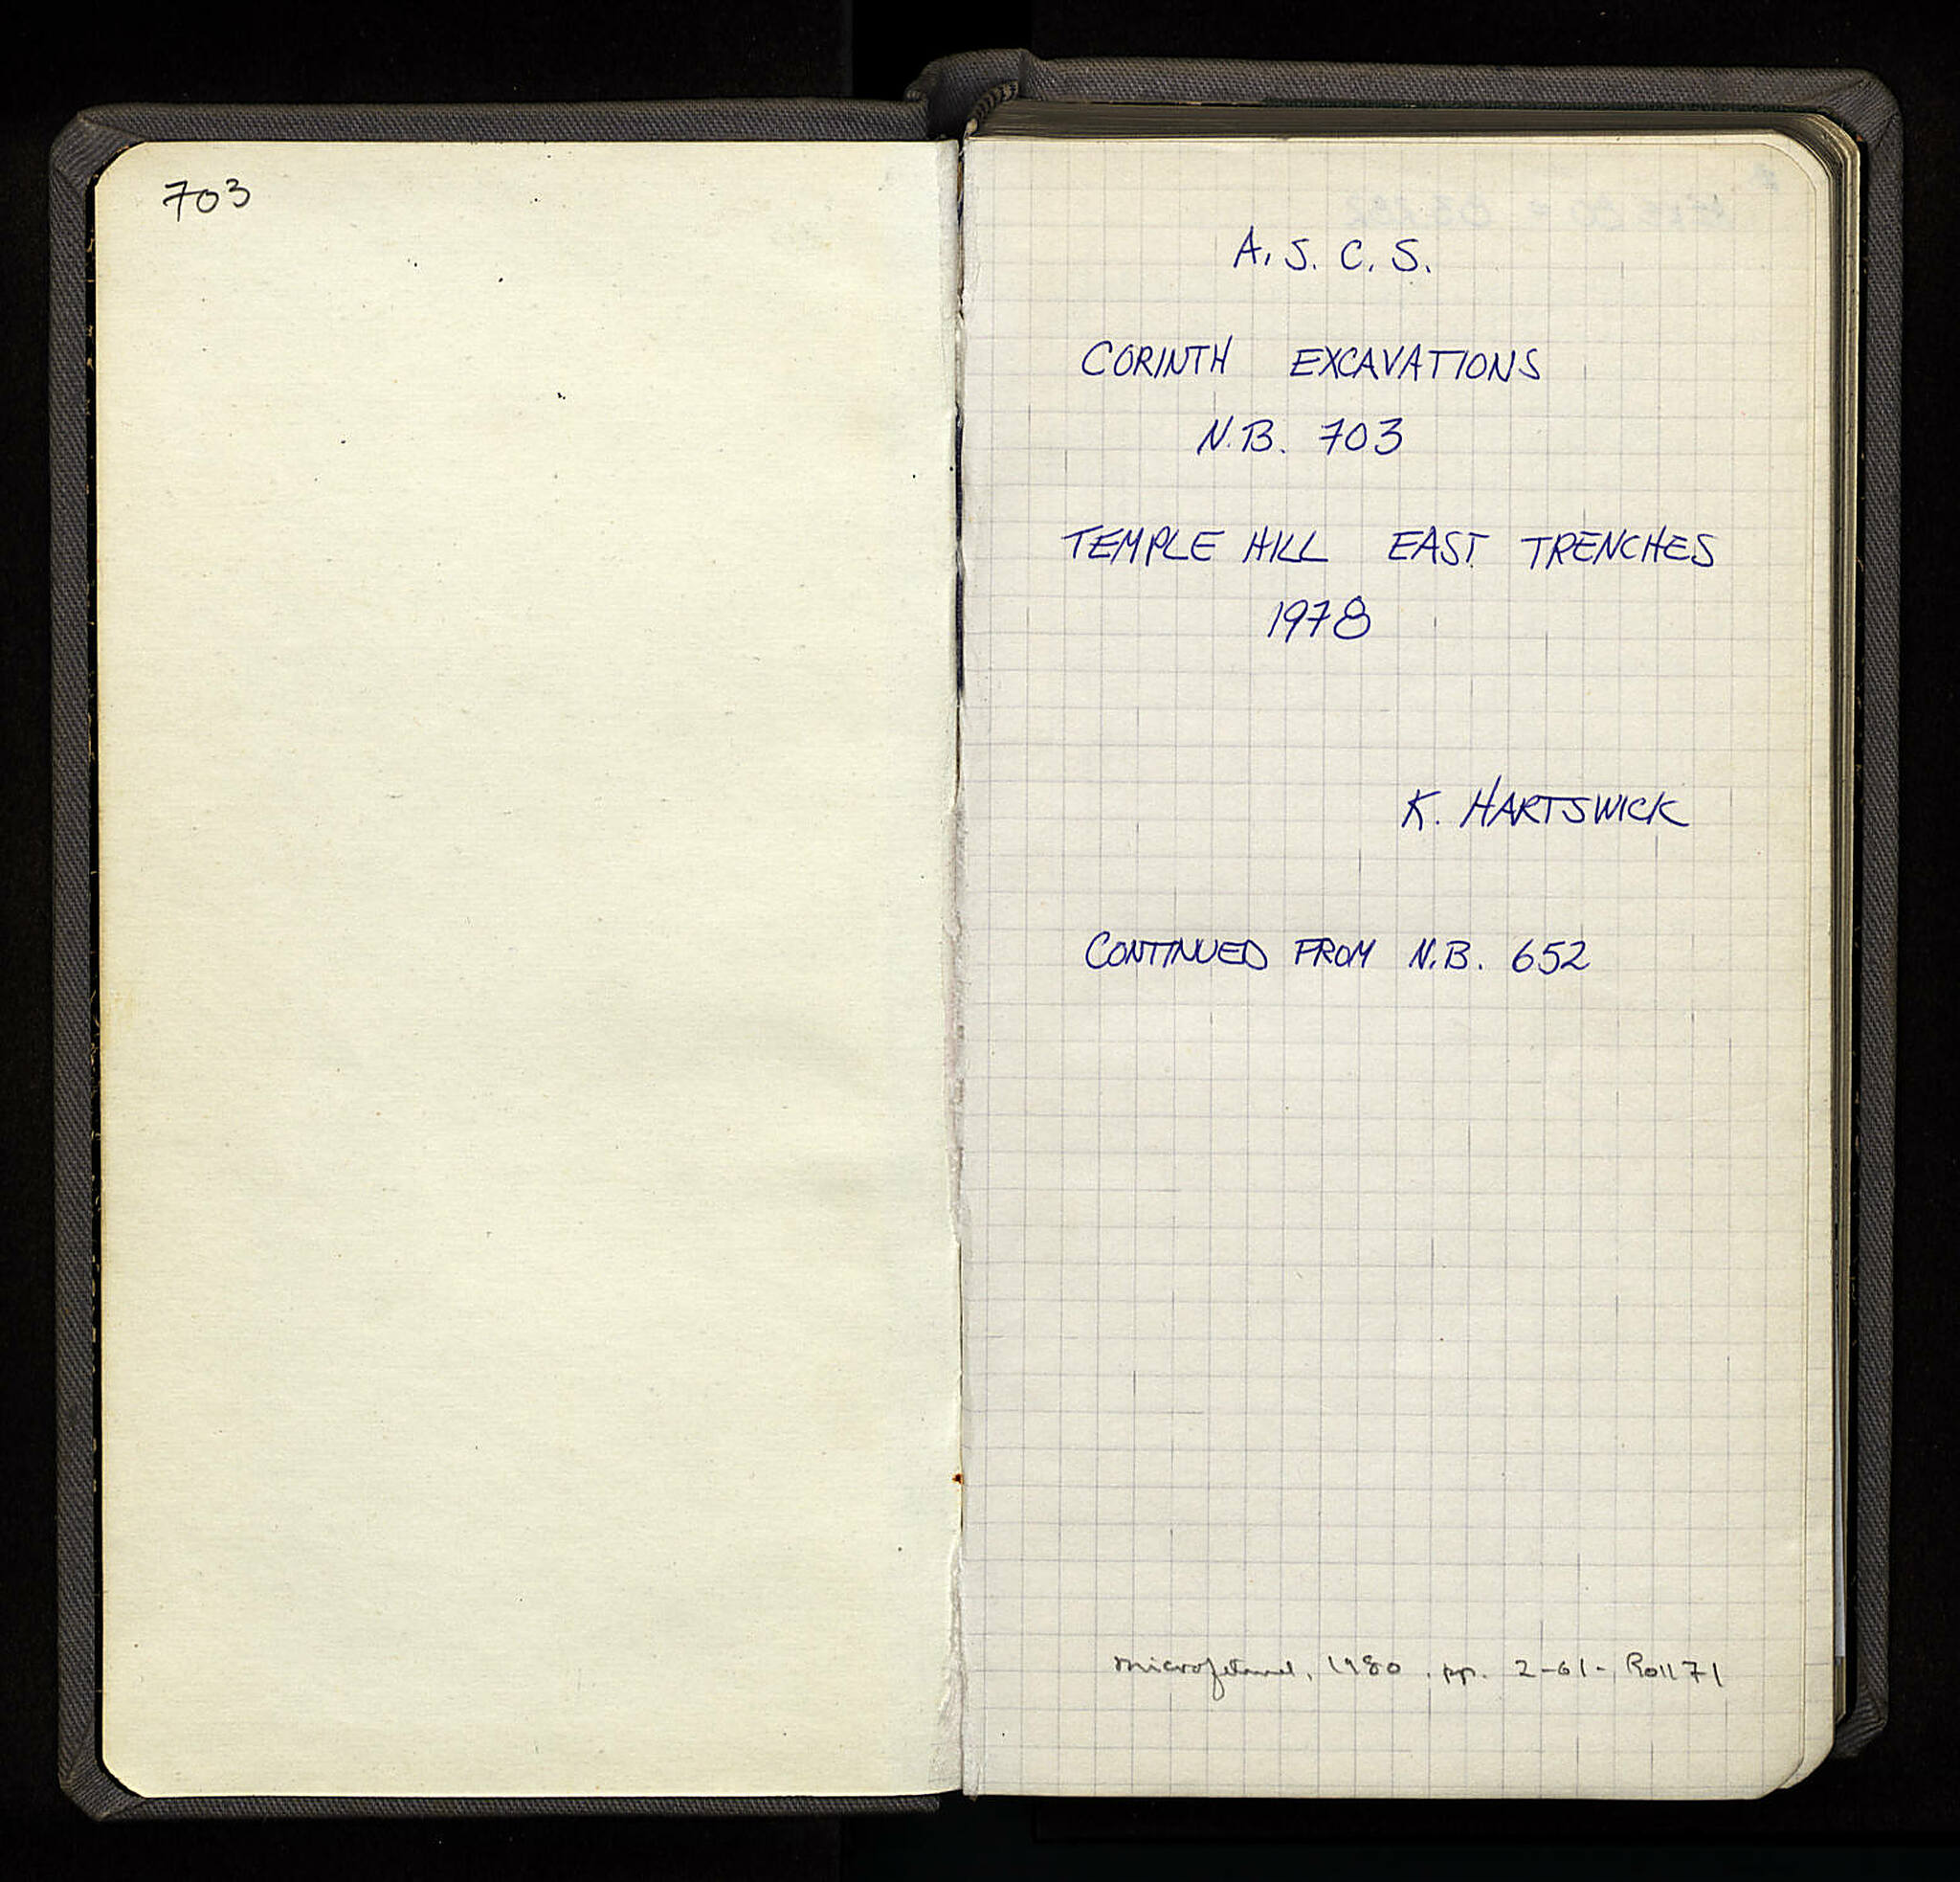 703
A. S. C. S.
CORINTH EXCAVATIONS
N.B. 703
TEMPLE HILL EAST TRENCHES
1978
K. HARTSWICK
CONTINUED FROM N.B. 652
microfilmed, 1980, pp. 2-61- Roll 71